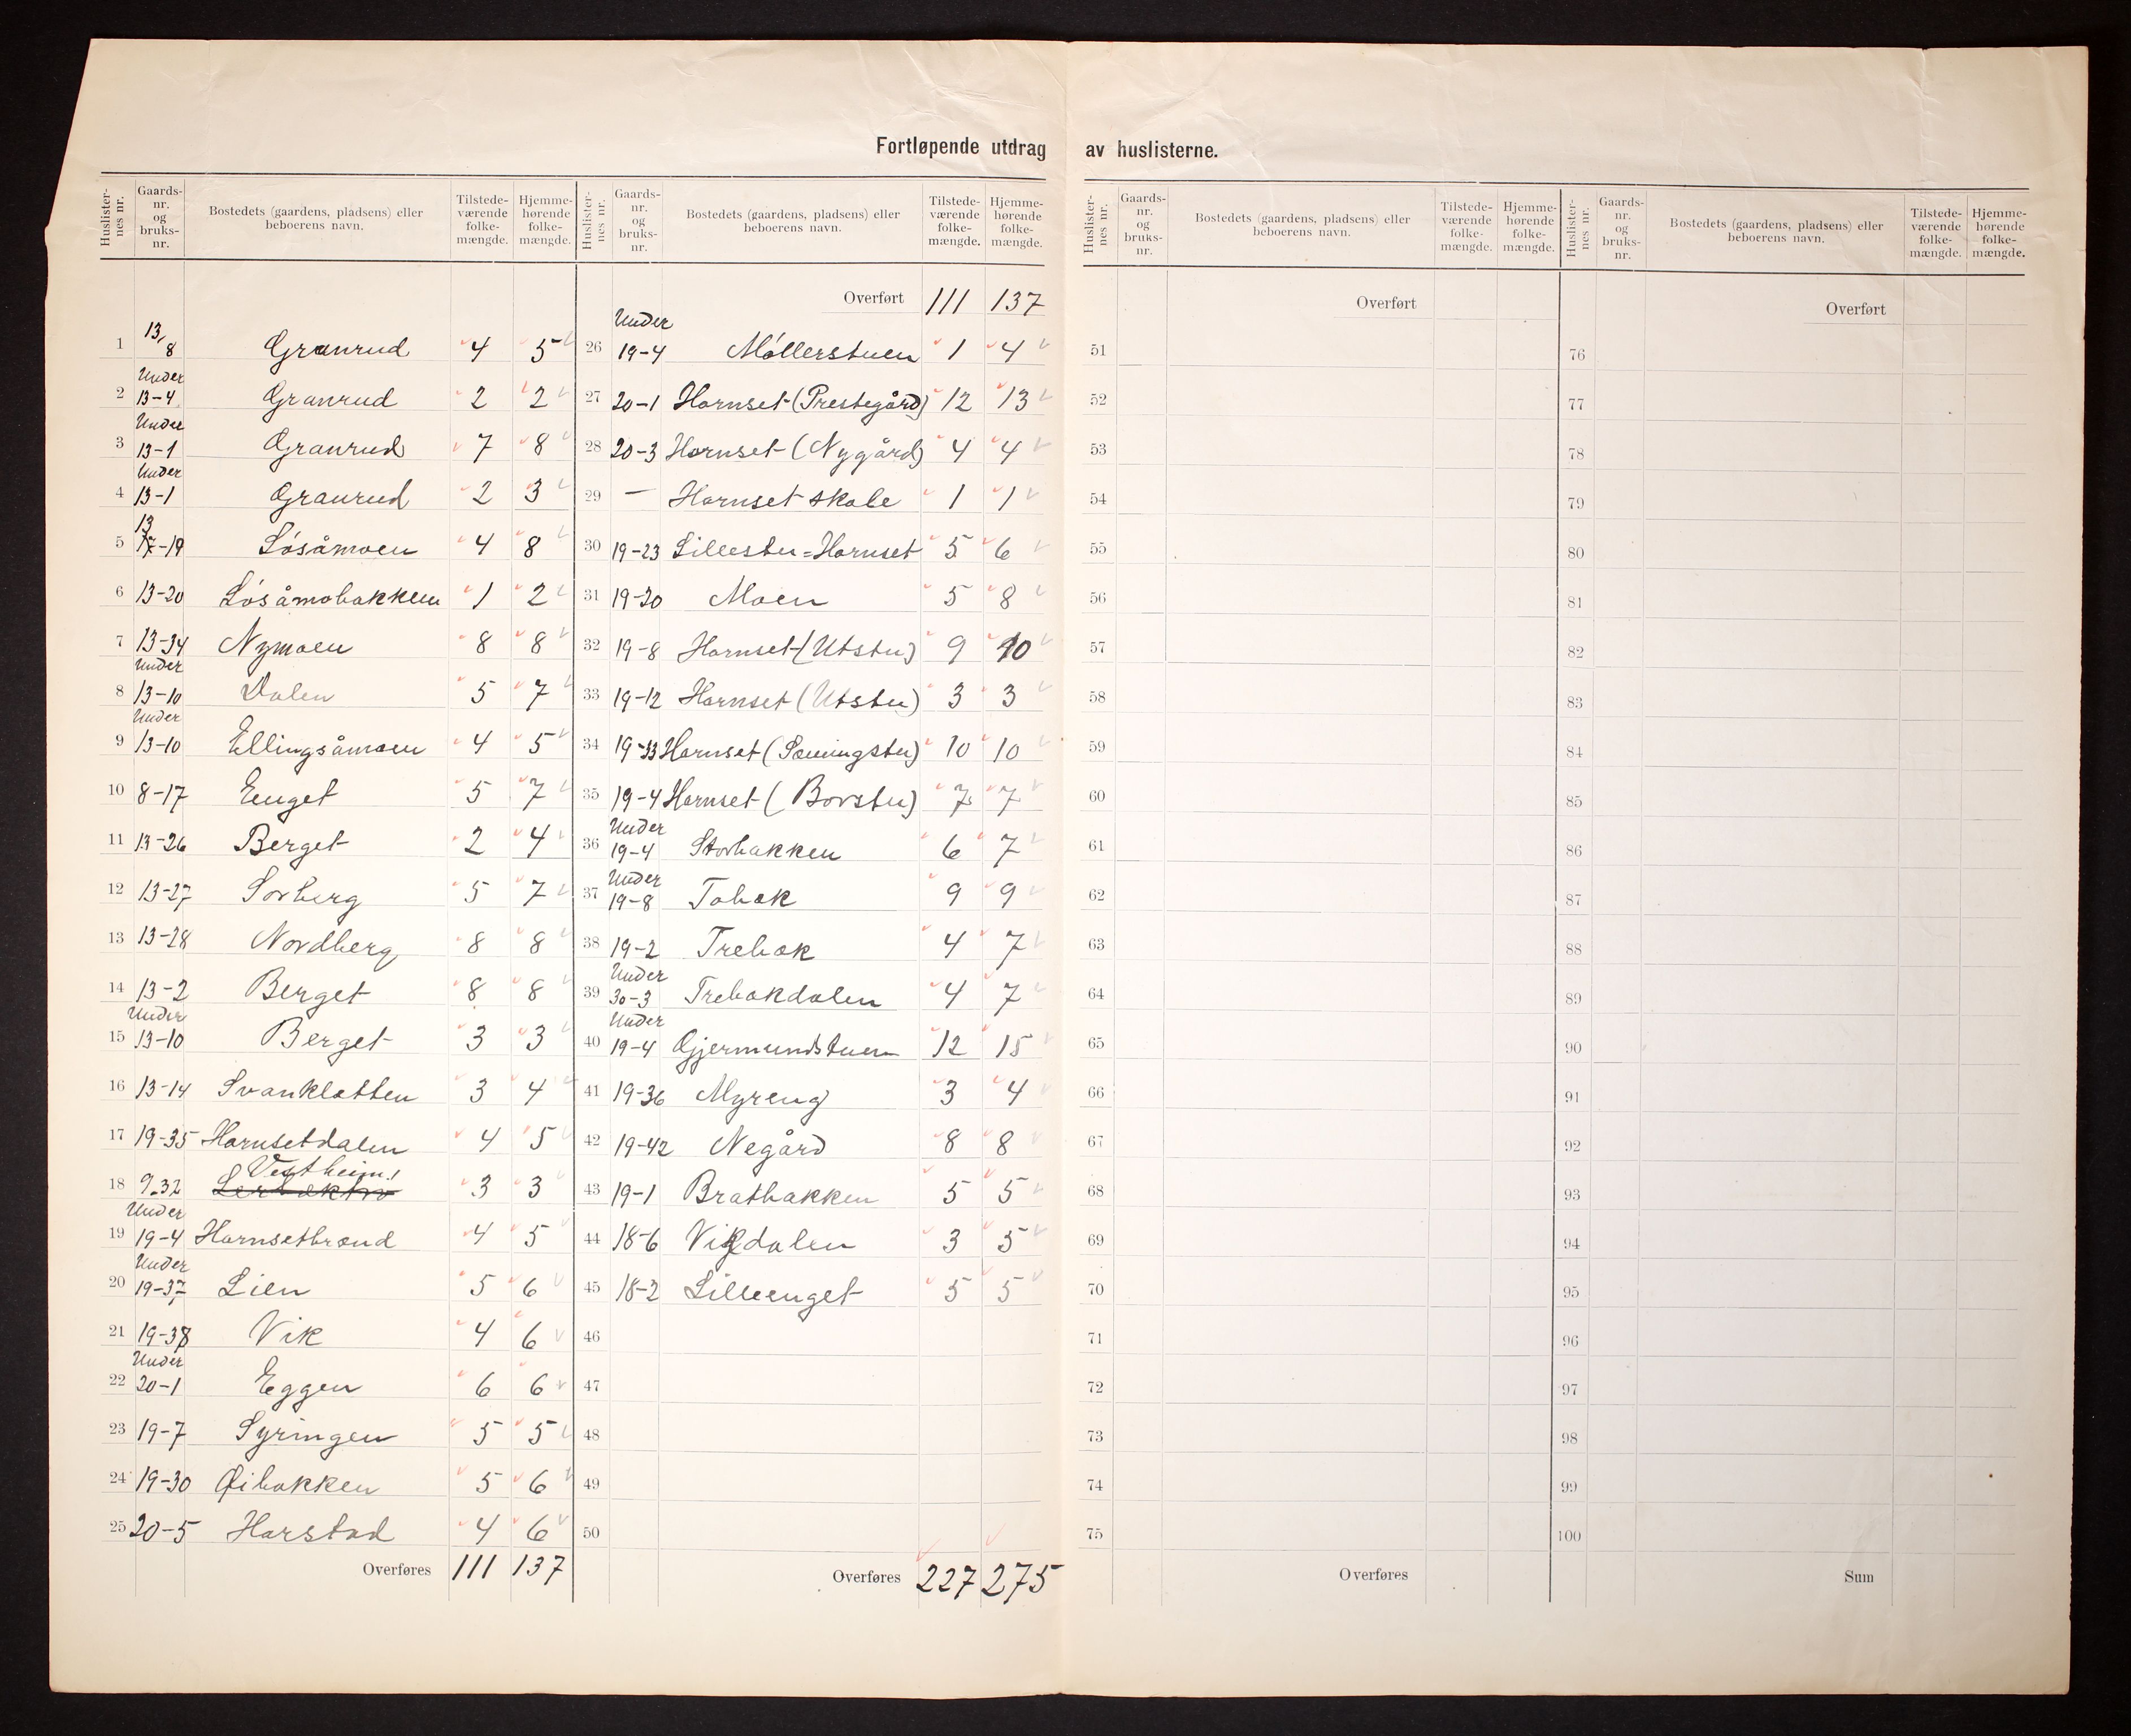 Fortløpende utdrag av huslisterne.
Huslisternes nr. Gaards-nr. og bruks-nr. Bostedets (gaardens, pladsens) eller beboerens navn. Tilstede-værende folke-mængde. Hjemme-hørende folke-mængde.
1 13/8 Granrud 4 5
2 Under 13-4 Granrud 2 2
3 Under 13-1 Granrud 7 8
4 Under 13-1 Granrud 2 3
5 13-19 Løsåmoen 4 8
6 13-20 Løsåmobakken 1 2
7 13-34 Nymoen 8 8
8 Under 13-10 Dalen 5 7
9 Under 13-10 Ellingsåmoen 4 5
10 8-17 Enget 5 7
11 13-26 Berget 2 4
12 13-27 Sorberg 5 7
13 13-28 Nordberg 8 8
14 13-2 Berget 8 8
15 Under 13-10 Berget 3 3
16 13-14 Svankløtten 3 4
17 19-35 Hornsetdalen 4 5
18 9-32 Vestheim! 3 3
19 Under 19-4 Hornsetbrænd 4 5
20 Under 19-37 Lien 5 6
21 19-38 Vik 4 6
22 Under 20-1 Eggen 6 6
23 19-7 Syringen 5 5
24 19-30 Øibakken 5 6
25 20-5 Harstad 4 6
Overføres 111 137
Huslisternes nr. Gaards-nr. og bruks-nr. Bostedets (gaardens, pladsens) eller beboerens navn. Tilstede-værende folke-mængde. Hjemme-hørende folke-mængde.
Overført 111 137
26 Under 19-4 Møllerstuen 1 4
27 20-1 Hornset (Prestegård) 12 13
28 20-3 Hornset (Nygård) 4 4
29 — Hornset skole 1 1
30 19-23 Lillestu=Hornset 5 6
31 19-20 Moen 5 8
32 19-8 Hornset (Utstu) 9 10
33 19-12 Hornset (Utstu) 3 3
34 19-33 Hornset (Sæningstu) 10 10
35 19-4 Hornset (Borstu) 7 7
36 Under 19-4 Storbakken 6 7
37 Under 19-8 Tobæk 9 9
38 19-2 Trebæk 4 7
39 Under 30-3 Trebækdalen 4 7
40 Under 19-4 Gjermundstuen 12 15
41 19-36 Myreng 3 4
42 19-42 Negård 8 8
43 19-1 Bratbakken 5 5
44 18-6 Vikdalen 3 5
45 18-2 Lilleenget 5 5
46
47
48
49
50
Overføres 227 275
Huslisternes nr. Gaards-nr. og bruks-nr. Bostedets (gaardens, pladsens) eller beboerens navn. Tilstede-værende folke-mængde. Hjemme-hørende folke-mængde.
Overført
51
52
53
54
55
56
57
58
59
60
61
62
63
64
65
66
67
68
69
70
71
72
73
74
75
Overføres
Huslisternes nr. Gaards-nr. og bruks-nr. Bostedets (gaardens, pladsens) eller beboerens navn. Tilstede-værende folke-mængde. Hjemme-hørende folke-mængde.
Overført
76
77
78
79
80
81
82
83
84
85
86
87
88
89
90
91
92
93
94
95
96
97
98
99
100
Sum